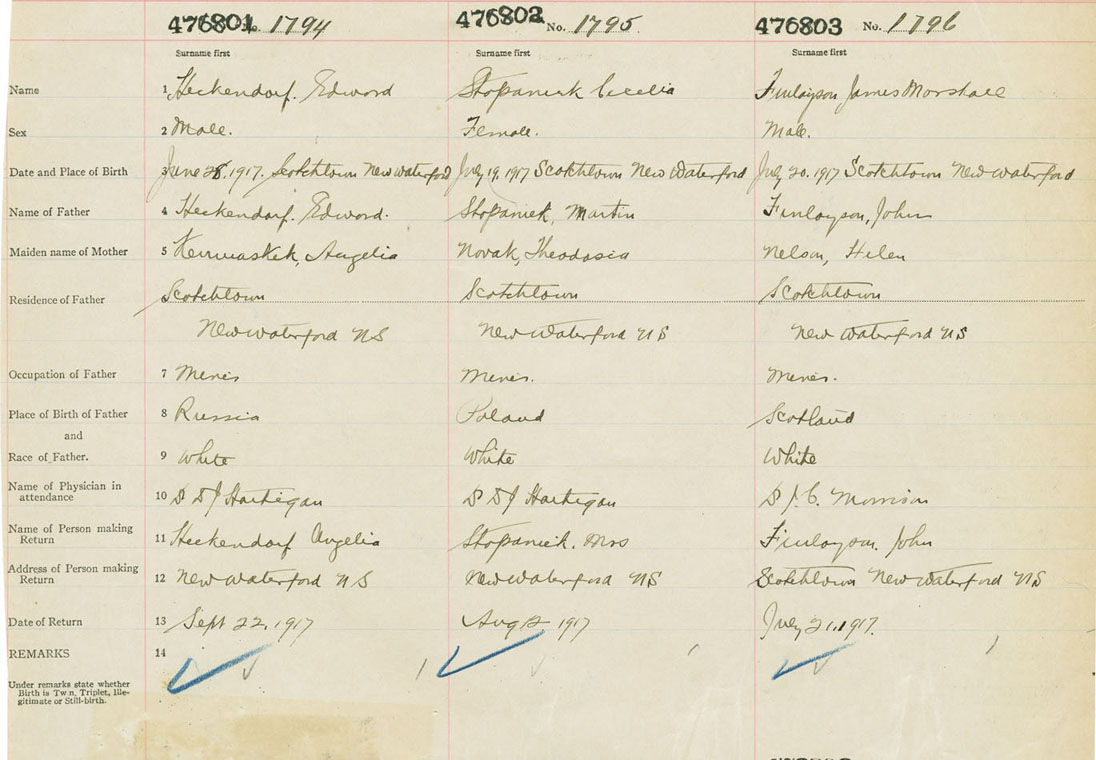 476801 No. 1794 476802 No. 1795 476803 No. 1796
Surname first Surname first Surname first
Name 1 Heckendorf. Edword Stopaniek Cecelia Finlayson James Marshall
Sex 2 Male. Female. Male.
Date and Place of Birth 3 June 28. 1917. Scotchtown New Waterford July 19, 1917 Scotchtown New Waterford July 20. 1917 Scotchtown New Waterford
Name of Father 4 Heckendorf. Edword. Stopaniek, Martin Finlayson, John
Maiden name of Mother 5 Angelia Novak, Theodosia Nelson, Helen
Residence of Father Scotchtown Scotchtown Scotchtown
New Waterford NS New Waterford NS New Waterford NS
Occupation of Father 7 Miner Miner. Miner.
Place of Birth of Father 8 Russia Poland Scotland
and
Race of Father. 9 White White White
Name of Physician in
attendance 10 D D J Hartigan D D J Hartigan D J. C. Morrison
Name of Person making
Return 11 Heckendorf Angelia Stopaniek. Mrs Finlayson. John
Address of Person making
Return 12 New Waterford NS New Waterford NS Scotchtown New Waterford NS
Date of Return 13 Sept 22, 1917 Aug 12 1917 July 21, 1917.
REMARKS 14
Under remarks state whether
Birth is Twn, Triplet, Ille-
gitimate or Still-birth.